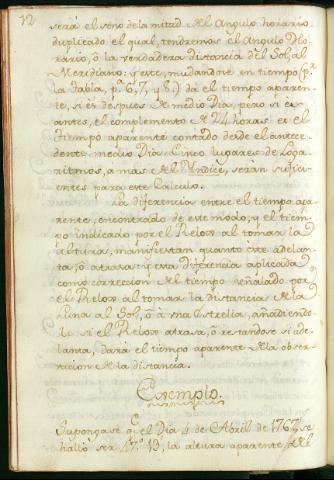 12
será el seno de la mitad del Angulo horario
duplicado el qual, tendremos el Angulo Ho
rario, ò la verdadera distancia del Sol, al
Meridiano: y este, mudandose en tiempo (pr
la tabla, p. 6, 7, y 8) dá el tiempo aparen
te, si es despues del medio Dia, pero si es
antes, el complemento à 24 horas es el
tiempo aparente contado desde el antece
dente medio Dia. Cinco lugares de Loga
ritmos, a mas del Yndice, serán sufici
entes para este Cálculo.
La diferencia entre el tiempo apa
rente, encontrado de este modo, y el tiem
po indicado por el Relox al tomar la
altura, manifiestan quanto este adelan
ta, ò atrasa: y esta diferencia aplicada
como correccion del tiempo señalado por
el Relox al tomar la distancia de la
Luna al Sol, ò à una Estrella, añadiendo
lo si el Relox atrasa, ò restandose si ade
lanta, dará el tiempo aparente de la obser
vacion de la distancia.
Exemplo.
Supongase q el Dia 4 de Abril de 1767, se
halló ser 47.° 13', la altura aparente del